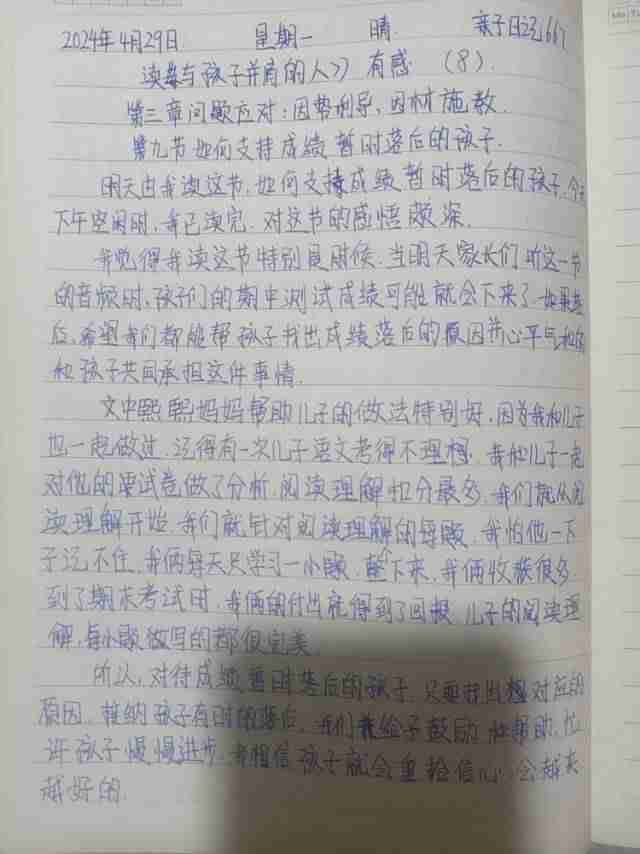 2024年4月29日 星期一 晴 亲子日记667
读《与孩子并肩的人》》有感 (8).
第三章问题应对:因势利导,因材施教.
第九节 如何支持成绩暂时落后的孩子.
明天由我读这节,如何支持成绩暂时落后的孩子,今天
下午空闲时,我已读完,对这节的感悟颇深.
我觉得我读这节特别是时候,当明天家长们听这一节
的音频时,孩子们的期中测试成绩可能就会下来了,如果落
后,希望我们都能帮孩子找出成绩落后的原因并心平气和的
和孩子共同承担这件事情.
文中熙熙妈妈帮助儿子的做法特别好,因为我和儿子
也一起做过,记得有一次儿子语文考得不理想,我和儿子一起
对他的测试卷做了分析,阅读理解扣分最多,我们就从阅
读理解开始,我们就针对阅读理解的每题,我怕他一下
子记不住,我俩每天只学习一小题,整下来,我俩收获很多
到了期末考试时,我俩的付出就得到了回报,儿子的阅读理
解,每小题做写的都很完美.
所以,对待成绩暂时落后的孩子,只要找出相对应的
原因,接纳孩子有时的落后,我们就给予鼓励和帮助,允
许孩子慢慢进步,我相信孩子就会重拾信心,会越来
越好的.